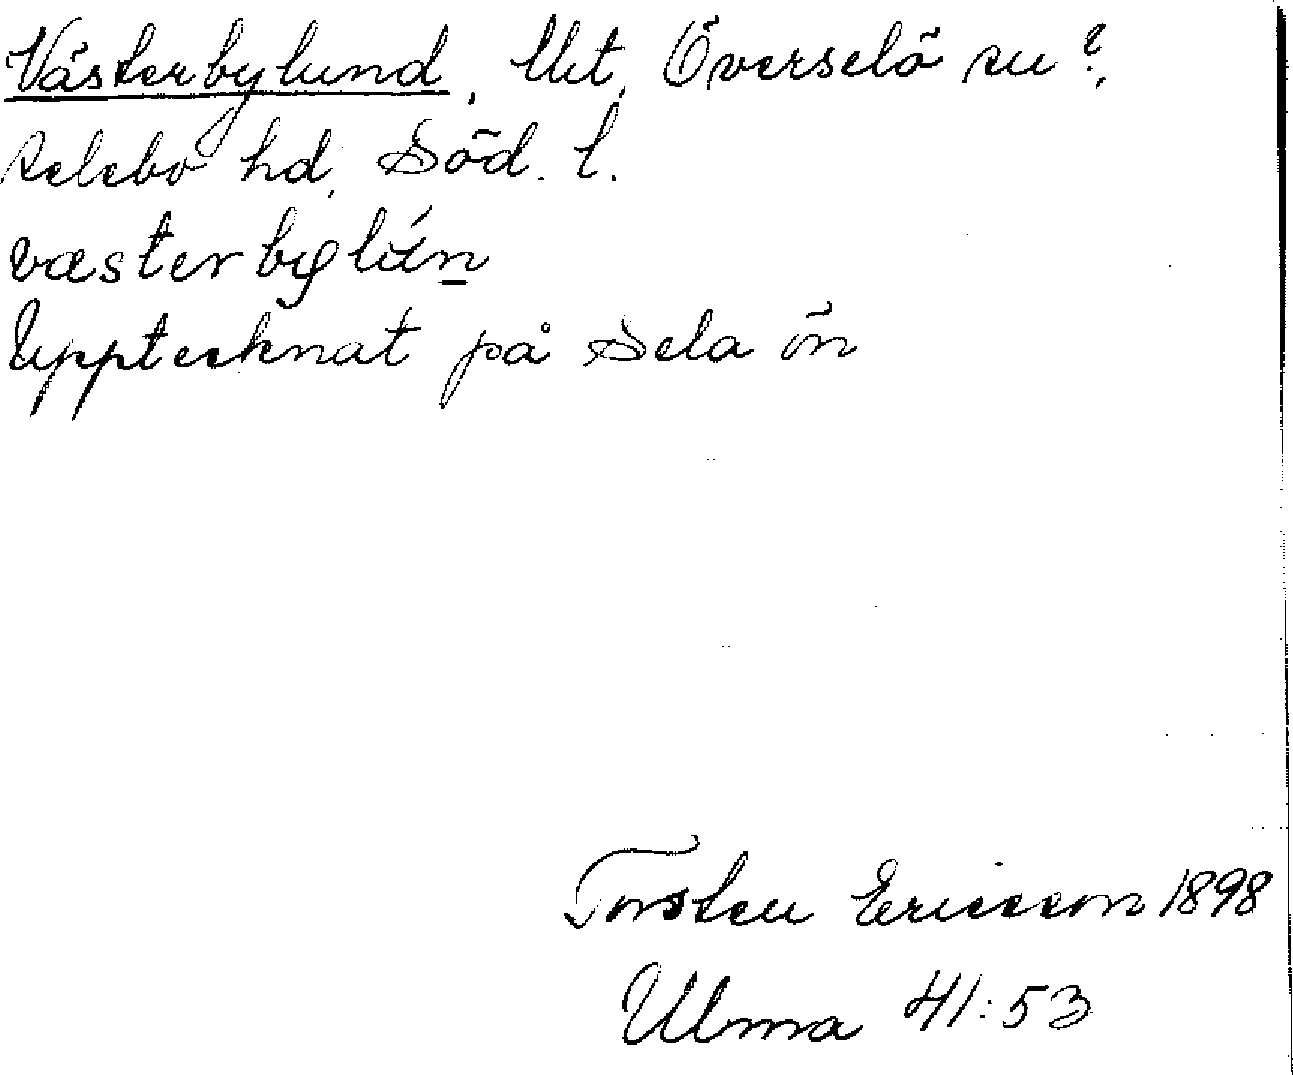 Västerbylund, Ut, Överselö sn?,
Selebo hd, Söd. l.
væsterbylún
Upptecknat på Sela ön
Torsten Ericsson 1898
Ulma 41:53